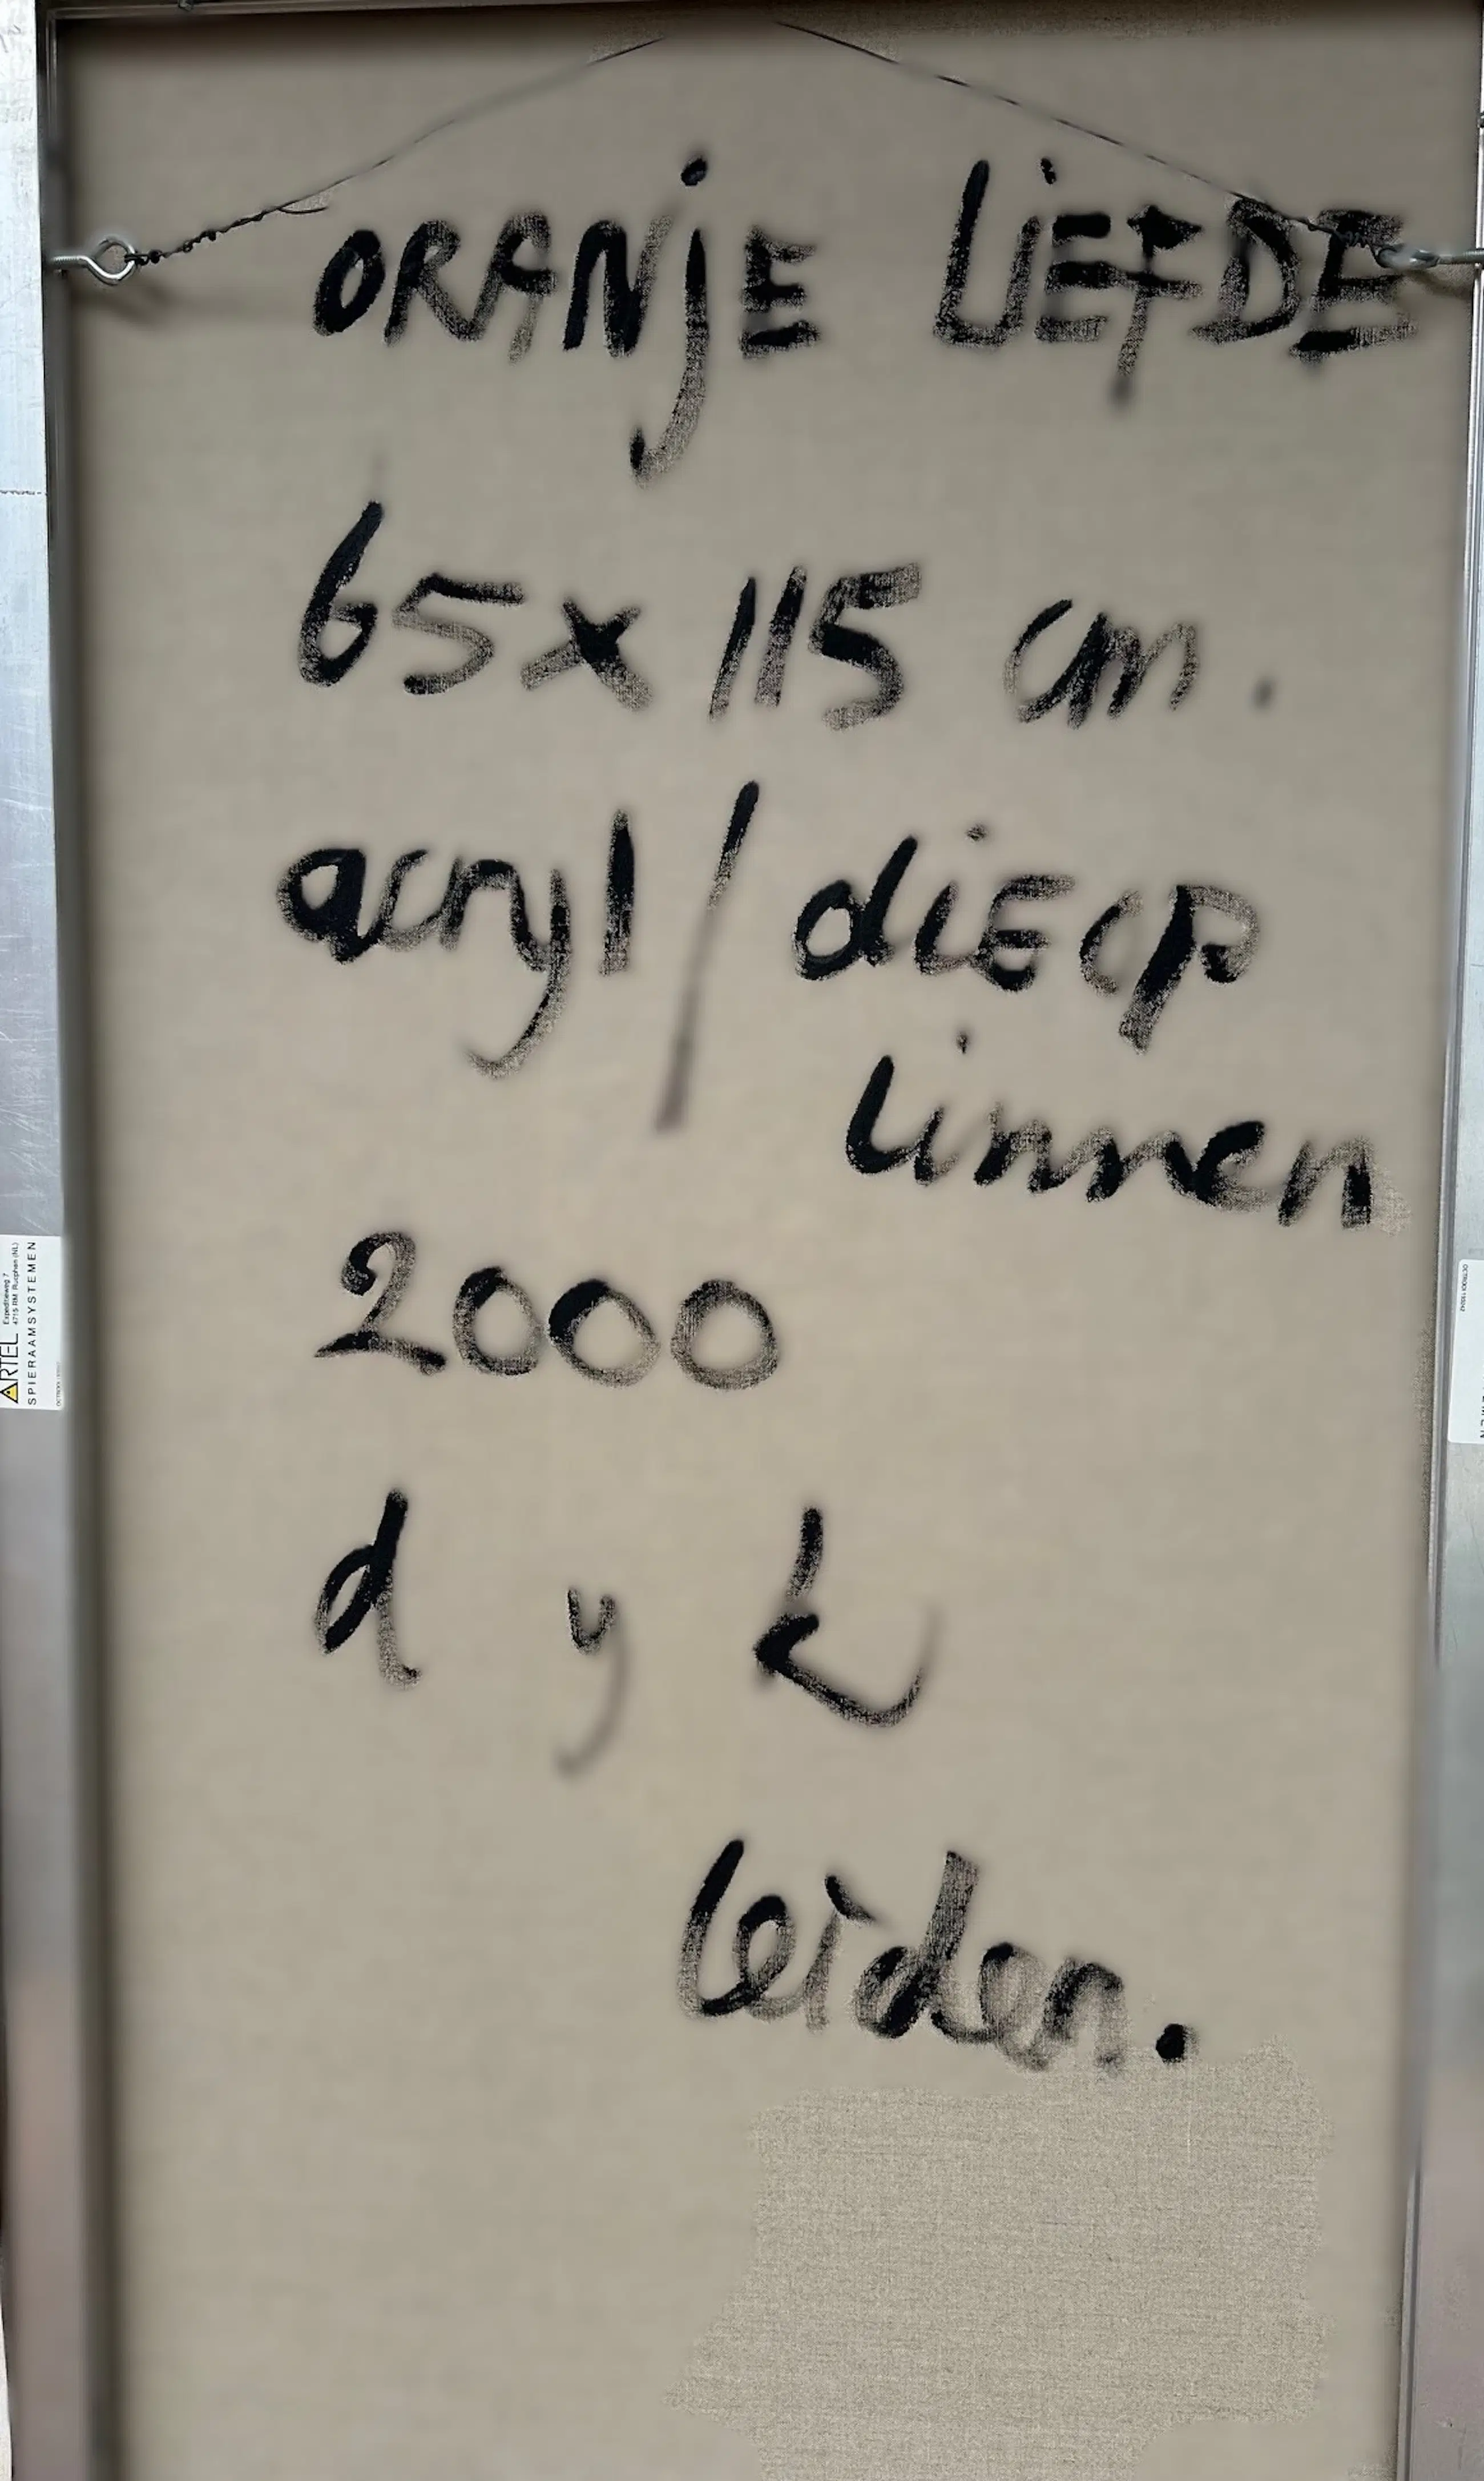 ORANjE LiEFDE
65x 115 cm.
acryl / diEcp
linnen
2000
d y k
leiden.
ARTEL
Expeditieweg 7
4715 RM Rucphen (NL)
SPIERAAMSYSTEMEN